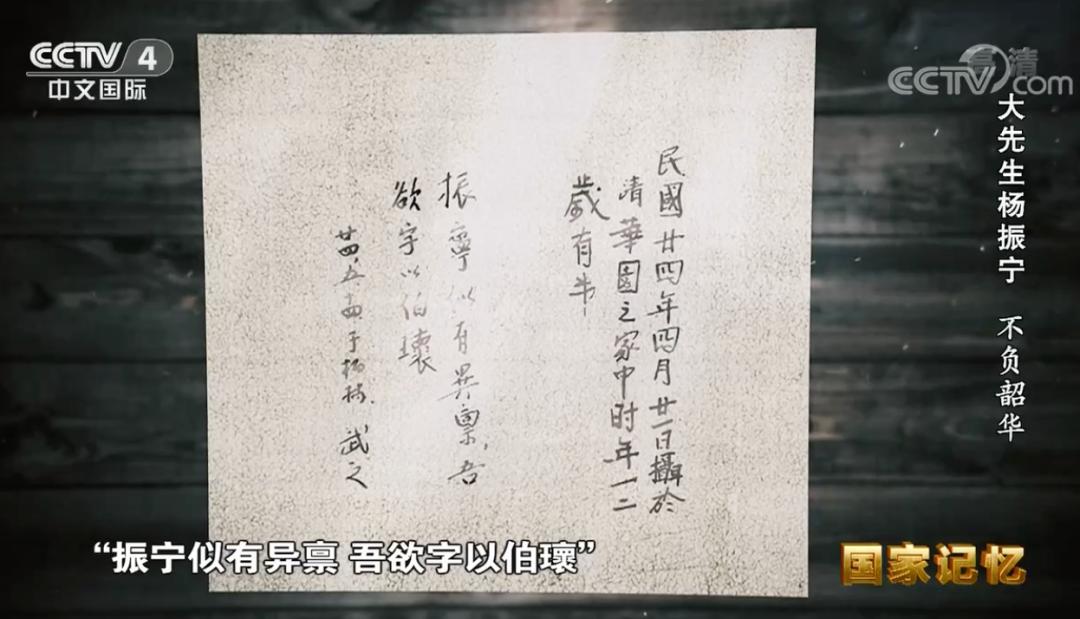 CCTV 4
中文国际
高清
CCTV.com
大先生杨振宁 不负韶华
民國廿四年四月廿一日攝於
清華園之家中时年一二
歲有半
振寧似有異稟,吾
欲字以伯瓌
廿四,五,于柏林. 武之
“振宁似有异禀 吾欲字以伯瓌”
国家记忆